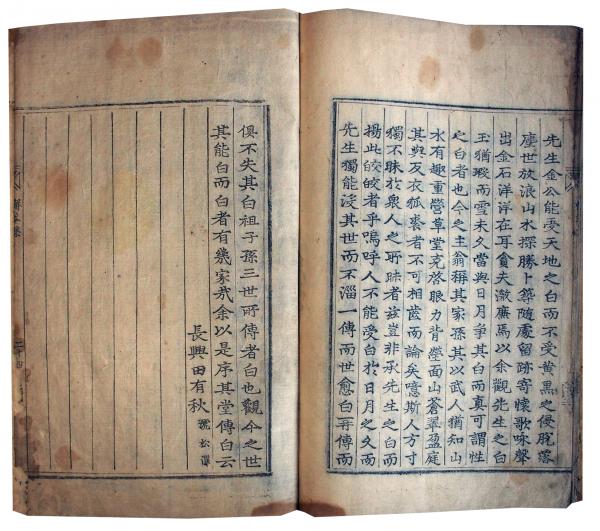 先生金公能受天地之白而不受黃黑之侵脫落
塵世放浪山水探勝卜築隨處留跡寄懷歌咏聲
出金石洋洋在耳貪夫激廉焉以余觀先生之白
玉猶瑕而雪未久當與日月爭其白而真可謂性
之白者也今之主翁稱其家孫其以武人猶知山
水有趣重營草堂克啓眼力背塋面山蒼翠盈庭
其與友衣狐裘者不可相齒而論矣噫斯人方寸
獨不昧於衆人之所昧者玆豈非承先生之白而
揚此皎皎者乎嗚呼人不能受白於日月之久而
先生獨能沒其世而不淄一傳而世愈白再傳而
俁不失其白祖子孫三世所傳者白也觀今之世
其能白而白者有幾家哉余以是序其堂傳白云
長興田有秋 號松